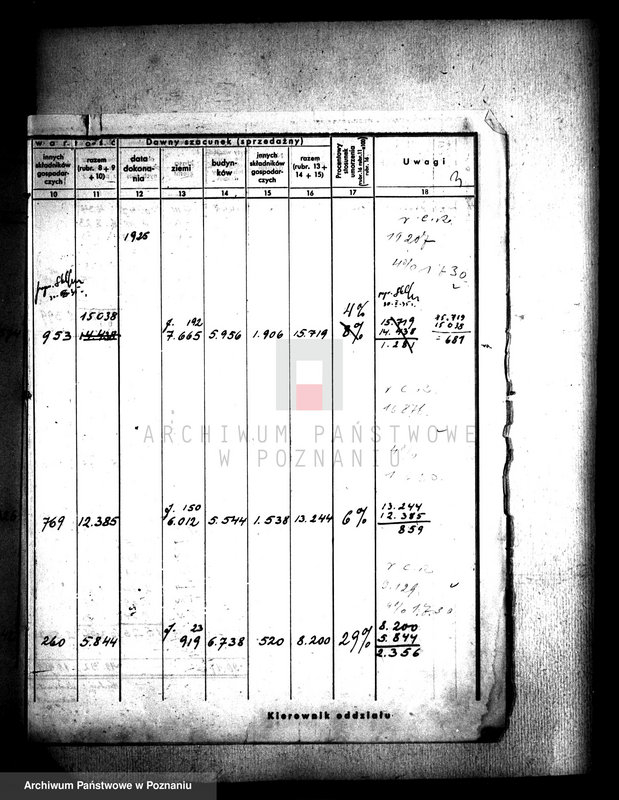 wartość
Dawny szacunek (sprzedażny)
innych składników gospodarczych
razem (rubr. 8 + 9 + 10)
data dokonania
ziemi
budynków
innych składników gospodarczych
razem (rubr. 13 + 14 + 15)
Procentowy stosunek umorzenia
Uwagi
10 11 12 13 14 15 16 17 18
1925
15038
4%
953 14.438 J. 192 7.665 5.956 1.906 15.719 8%
15.719
14.438
1.281
15.719
15038
= 681
ARCHIWUM PAŃSTWOWE
W POZNANIU
769 12.385 J. 150 6.012 5.544 1.538 13.244 6%
13.244
12.385
859
260 5.844 J. 23 919 6.738 520 8.200 29%
8.200
5.844
2.356
Kierownik oddziału
Archiwum Państwowe w Poznaniu